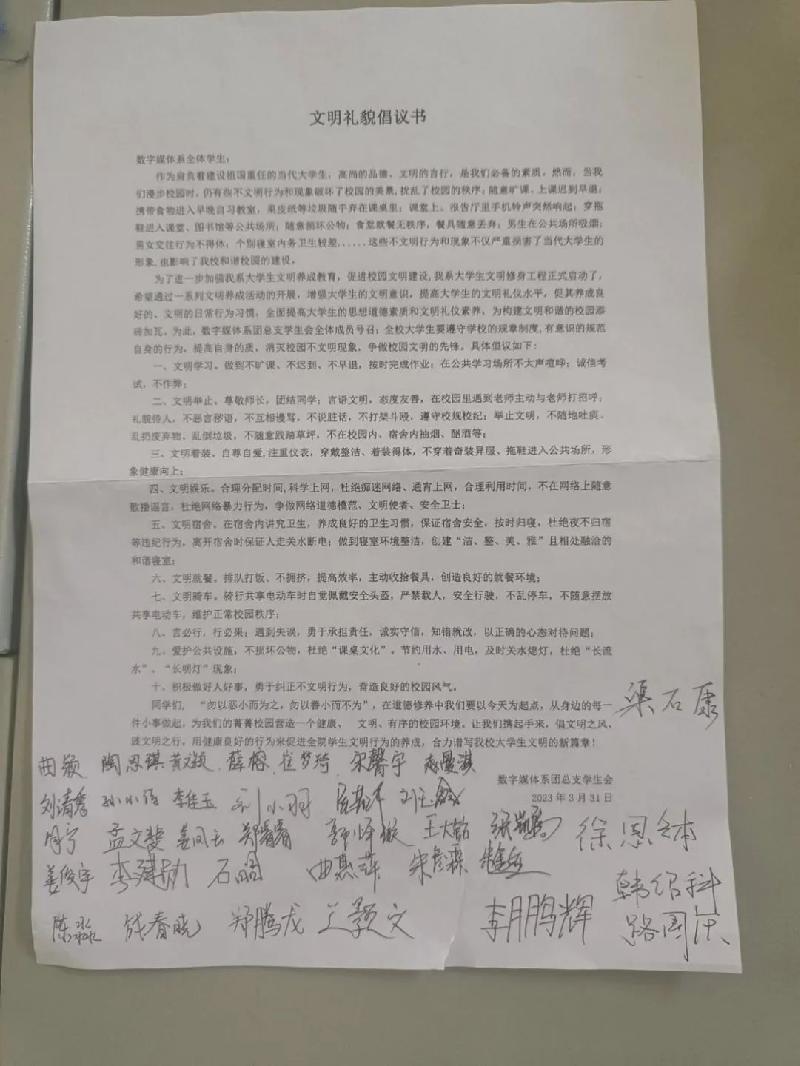 文明礼貌倡议书
数字媒体系全体学生：
作为肩负着建设祖国重任的当代大学生，高尚的品德、文明的言行，是我们必备的素质。然而，当我
们漫步校园时，仍有些不文明行为和现象破坏了校园的美景，扰乱了校园的秩序；随意旷课、上课迟到早退；
携带食物进入早晚自习教室，果皮纸等垃圾随手弃在课桌里；课堂上、报告厅里手机铃声突然响起；穿拖
鞋进入课堂、图书馆等公共场所；随意损坏公物；食堂就餐无秩序，餐具随意丢弃；男生在公共场所吸烟；
男女交往行为不得体，个别寝室内务卫生较差......这些不文明行为和现象不仅严重损害了当代大学生的
形象，也影响了我校和谐校园的建设。
为了进一步加强我系大学生文明养成教育，促进校园文明建设，我系大学生文明修身工程正式启动了，
希望通过一系列文明养成活动的开展，增强大学生的文明意识，提高大学生的文明礼仪水平，促其养成良
好的、文明的日常行为习惯，全面提高大学生的思想道德素质和文明礼仪素养，为构建文明和谐的校园添
砖加瓦。为此，数字媒体系团总支学生会全体成员号召：全校大学生要遵守学校的规章制度，有意识的规范
自身的行为，提高自身的质，消灭校园不文明现象，争做校园文明的先锋。具体倡议如下：
一、文明学习。做到不旷课、不迟到、不早退，按时完成作业；在公共学习场所不大声喧哗；诚信考
试，不作弊；
二、文明举止。尊敬师长，团结同学；言语文明，态度友善，在校园里遇到老师主动与老师打招呼；
礼貌待人，不恶言秽语，不互相谩骂，不说脏话，不打架斗殴，遵守校规校纪；举止文明，不随地吐痰、
乱扔废弃物、乱倒垃圾，不随意践踏草坪，不在校园内、宿舍内抽烟、酗酒等；
三、文明着装。自尊自爱，注重仪表，穿戴整洁、着装得体，不穿着奇装异服、拖鞋进入公共场所，形
象健康向上；
四、文明娱乐。合理分配时间，科学上网，杜绝痴迷网络、通宵上网，合理利用时间，不在网络上随意
散播谣言，杜绝网络暴力行为，争做网络道德模范、文明使者、安全卫士；
五、文明宿舍。在宿舍内讲究卫生，养成良好的卫生习惯，保证宿舍安全，按时归寝，杜绝夜不归宿
等违纪行为，离开宿舍时保证人走关水断电；做到寝室环境整洁，创建“洁、整、美、雅”且相处融洽的
和谐寝室；
六、文明就餐。排队打饭、不拥挤，提高效率，主动收拾餐具，创造良好的就餐环境；
七、文明骑车。骑行共享电动车时自觉佩戴安全头盔，严禁载人，安全行驶，不乱停车，不随意摆放
共享电动车，维护正常校园秩序；
八、言必行，行必果；遇到失误，勇于承担责任，诚实守信，知错就改，以正确的心态对待问题；
九、爱护公共设施，不损坏公物，杜绝“课桌文化”。节约用水、用电，及时关水熄灯，杜绝“长流
水”、“长明灯”现象；
十、积极做好人好事，勇于纠正不文明行为，营造良好的校园风气。
同学们，“勿以恶小而为之，勿以善小而不为”，在道德修养中我们要以今天为起点，从身边的每一
件小事做起，为我们的菁菁校园营造一个健康、文明、有序的校园环境。让我们携起手来，倡文明之风，
践文明之行，用健康良好的行为来促进全院学生文明行为的养成，合力谱写我校大学生文明的新篇章！
渠石康
曲颖 陶思琪 薛榕 崔梦琦 宋馨宇
数字媒体系团总支学生会
2023 年 3 月 31 日
刘清馨 孙小涵 李佳玉 刘小羽
周宁 孟文斐 姜凤云 郑春香 徐恩体
姜俊宇 李建勋 石明 曲燕萍 朱彦霖
韩绍科
陈淼 钱春晓 郑腾龙 兰颖文 李鹏辉 路国庆